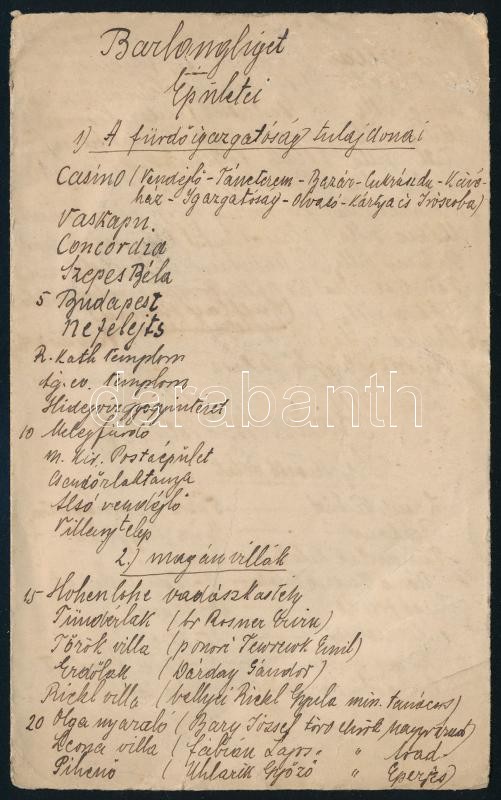 Barlangliget
Épületei
1) A fürdőigazgatóság tulajdonai
Casino (Vendéglő - Táncterem - Bazár - Cukrászda - Kávé-
ház - Igazgatóság - Olvasó - Kártya és Írószoba)
Vaskapu.
Concordia
Szepes Béla
5 Budapest
Nefelejts
R. Kath Templom
Ág. ev. Templom
Hidegvízgyógyintézet
10 Melegfürdő
m. Kir. Postaépület
Csendőrlaktanya
Alsó vendéglő
Villanytelep
2.) magánvillák
15 Hohenlohe vadászkastély
Tündérlak (br Rosner Ervin)
Török villa (ponori Tewrewk Emil)
Erdőlak (Várday Sándor)
Riekl villa (bellyei Riekl Gyula min. tanácsos)
20 Olga nyaraló (Bary József törv elnök
Leona villa (Fábián Lajos " " Arad
Pihenő (Uhlarik Győző " Eperjes)
darabanth